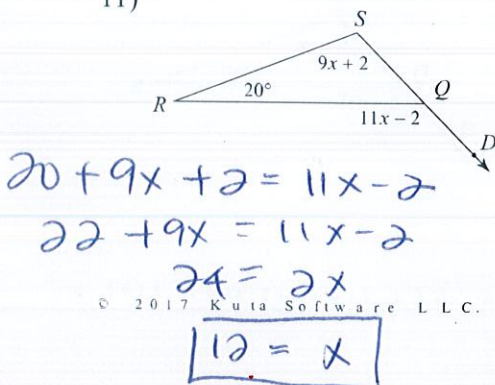 11)
S
9x + 2
Q
R
20°
11x − 2
D
20 + 9x + 2 = 11x - 2
22 + 9x = 11x - 2
24 = 2x
© 2017 Kuta Software LLC.
12 = x